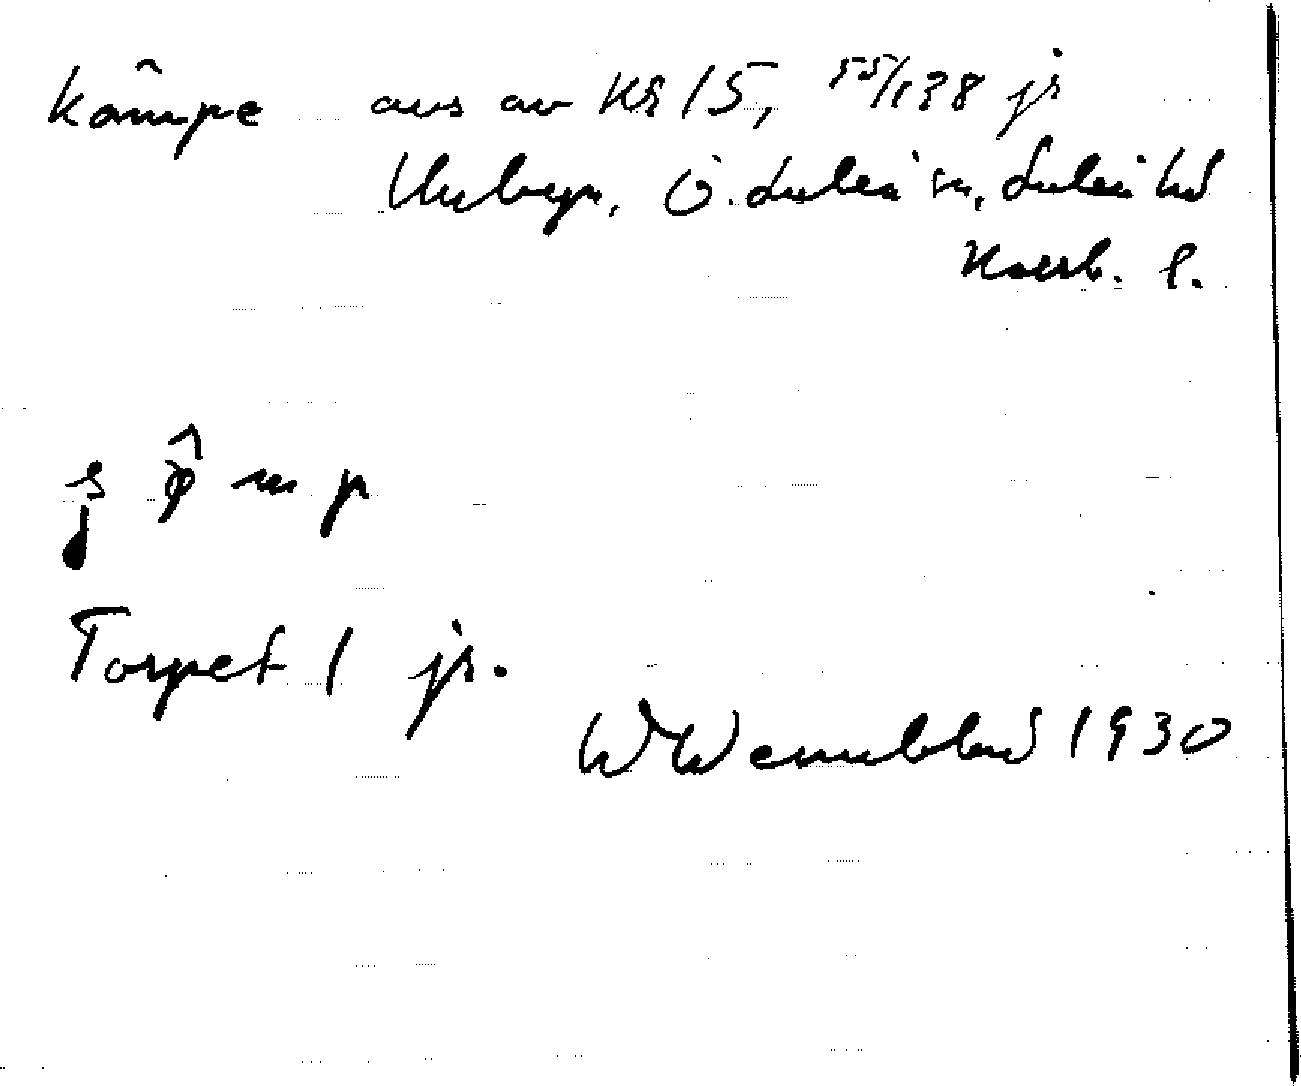 kâmpe aus av Kr 15, 55/138 jr
Unbyn, Ö. Luleå sn, Luleå hd
Norrb. l.
φ̂ m p
Torpet 1 jr.
W Wennblad 1930